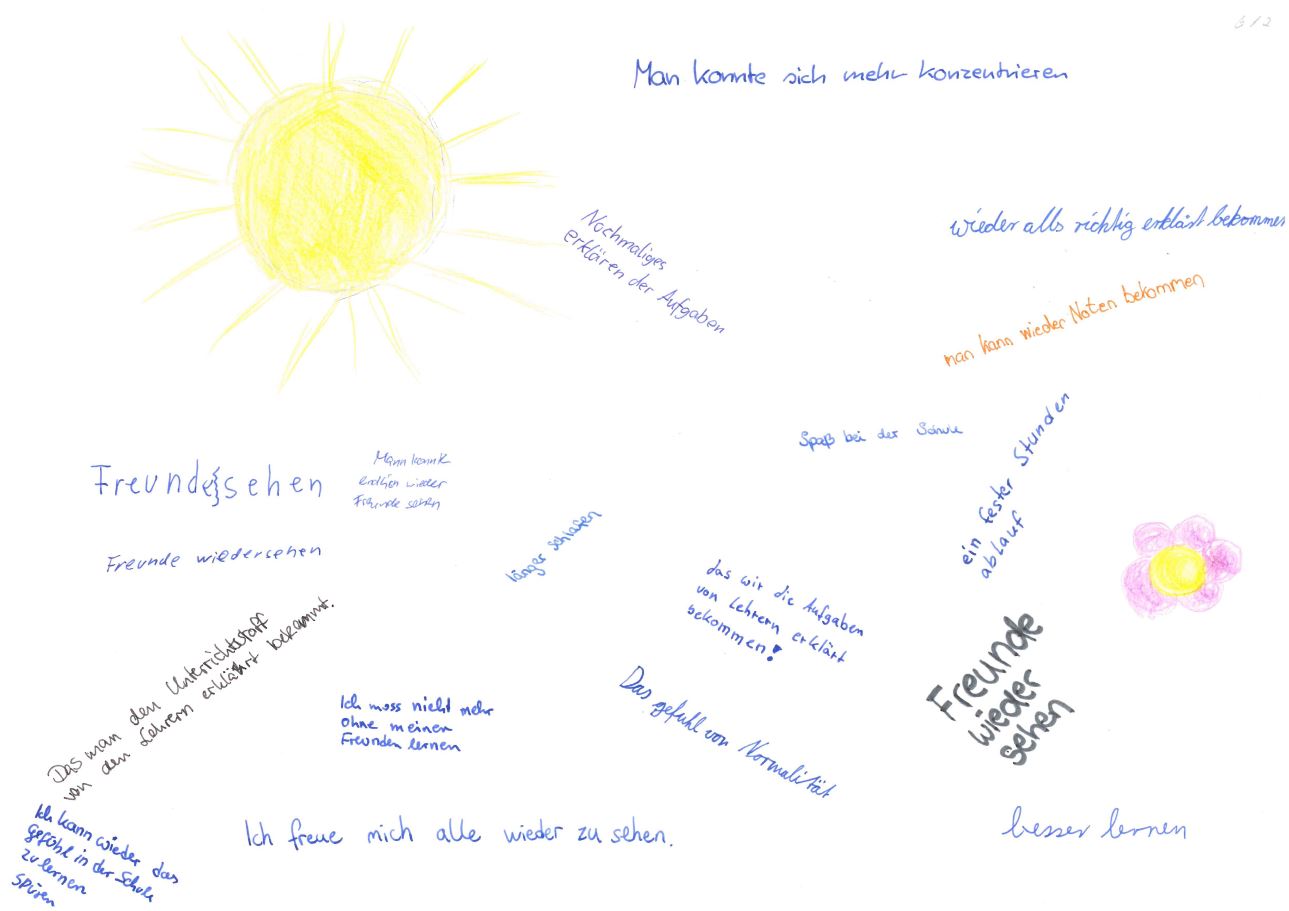 6/2
Man konnte sich mehr konzentrieren
Nochmaliges
erklären der Aufgaben
wieder alls richtig erklärt bekommen
man kann wieder Noten bekommen
Spaß bei der Schule
ein fester Stunden
ablauf
Freunde sehen
Mann konnte
endlich wieder
Freunde sehen
Freunde wiedersehen
länger schlafen
das wir die Aufgaben
von Lehrern erklärt
bekommen!
Freunde
wieder
sehen
Das man den Unterrichtstoff
von den Lehrern erklährt bekommt.
Ich muss nicht mehr
ohne meinen
Freunden lernen
Das gefühl von Normalität
Ich kann wieder das
gefühl in der Schule
zu lernen
spüren
Ich freue mich alle wieder zu sehen.
besser lernen